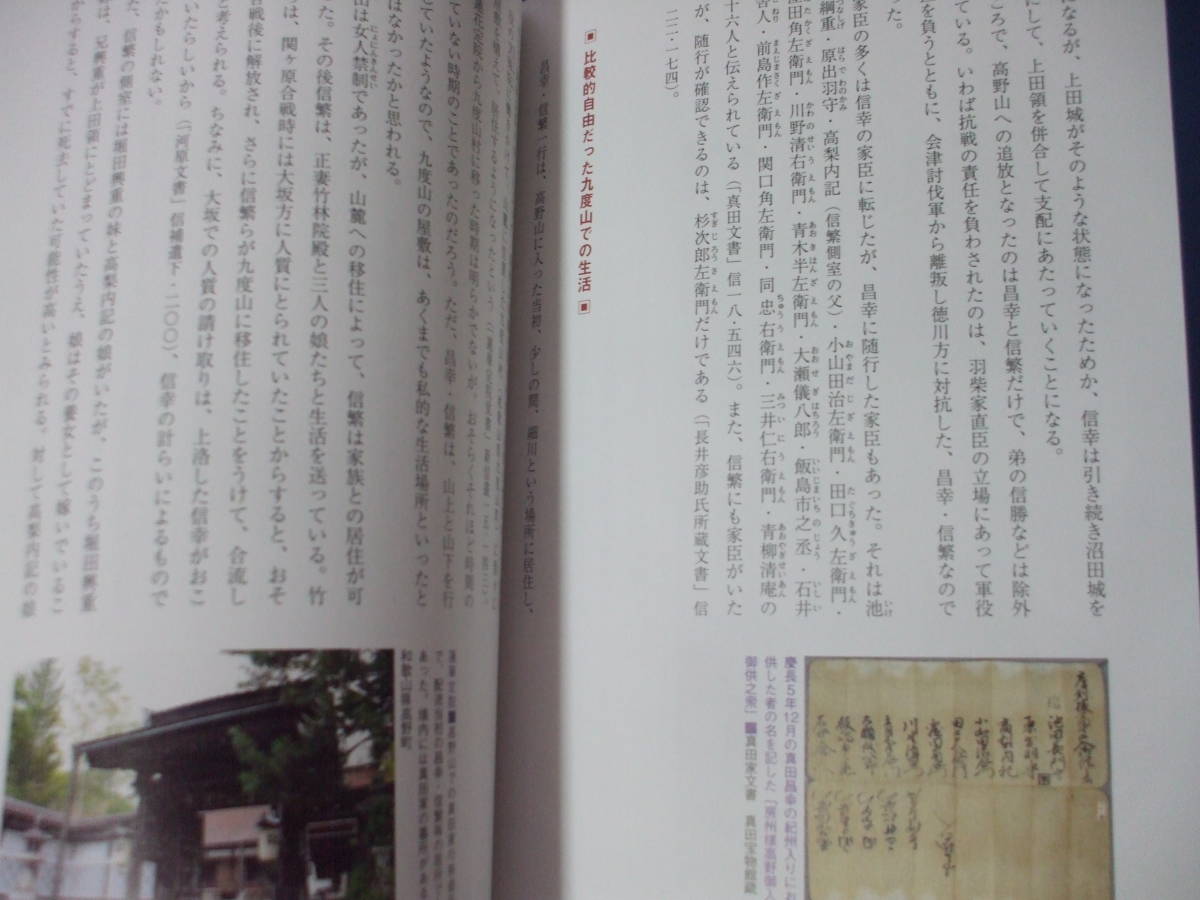 になるが、上田城がそのような状態になったためか、信幸は引き続き沼田城を
にして、上田領を併合して支配にあたっていくことになる。
ころで、高野山への追放となったのは昌幸と信繁だけで、弟の信勝などは除外
ている。いわば抗戦の責任を負わされたのは、羽柴家直臣の立場にあって軍役
を負うとともに、会津討伐軍から離叛し徳川方に対抗した、昌幸・信繁なので
った。
家臣の多くは信幸の家臣に転じたが、昌幸に随行した家臣もあった。それは池
綱重・原出羽守・高梨内記（信繁側室の父）・小山田治左衛門・田口久左衛門・
窪田角左衛門・川野清右衛門・青木半左衛門・大瀬儀八郎・飯島市之丞・石井
舎人・前島作左衛門・関口角左衛門・同忠右衛門・三井仁右衛門・青柳清庵の
十六人と伝えられている（「真田文書」信一八・五四六）。また、信繁にも家臣がいた
が、随行が確認できるのは、杉次郎左衛門だけである（「長井彦助氏所蔵文書」信
二二・一七四）。
■ 比較的自由だった九度山での生活 ■
昌幸・信繁一行は、高野山に入った当初、少しの間、細川という場所に居住し、
蓮花定院から九度山村に移った時期は明らかでないが、おそらくそれほど時間の
ていない時期のことであったのだろう。ただ、昌幸・信繁は、山上と山下を行
していたようなので、九度山の屋敷は、あくまでも私的な生活場所といったと
はなかったかと思われる。
山は女人禁制であったが、山麓への移住によって、信繁は家族との居住が可
った。その後信繁は、正妻竹林院殿と三人の娘たちと生活を送っている。竹
は、関ヶ原合戦時には大坂方に人質にとられていたことからすると、おそ
合戦後に解放され、さらに信繁らが九度山に移住したことをうけて、合流し
と考えられる。ちなみに、大坂での人質の請け取りは、上洛した信幸がおこ
いたらしいから（「河原文書」信補遺下・二〇〇）、信幸の計らいによるもので
たかもしれない。
た、信繁の側室には堀田興重の妹と高梨内記の娘がいたが、このうち堀田興重
は、兄興重が上田領にとどまっていたうえ、娘はその養女として嫁いでいるこ
からすると、すでに死去していた可能性が高いとみられる。対して高梨内記の娘
慶長5年12月の真田昌幸の紀州入りにお
供した者の名を記した「房州様高野御入
御供之衆」■真田家文書 真田宝物館蔵
あった。境内には真田家の墓がある
和歌山県高野町